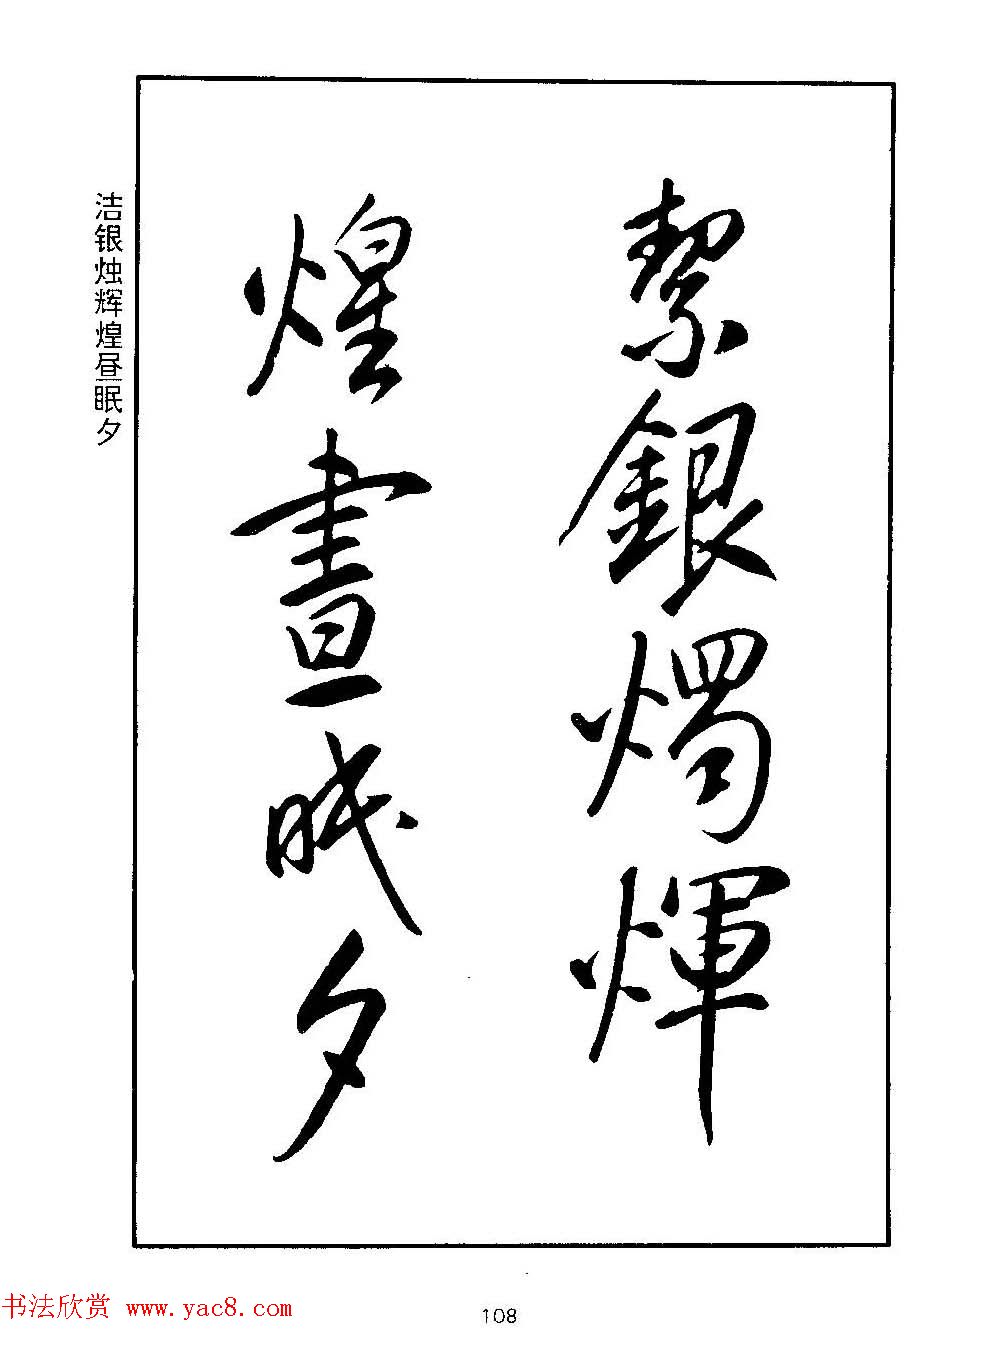 絜銀燭煇
煌晝眠夕
洁银烛辉煌昼眠夕
书法欣赏 www.yac8.com
108